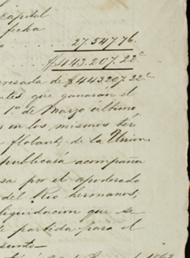 capital
fecha
27.547.76.
$ 443.207.22c
presada de $ 443207.22c
que ganarán el
1º de Marzo último
en los mismos tér
flotante, de la Union
publicase acompaña
sa por el apoderado
del Rio hermanos,
liquidacion que se
partida para el